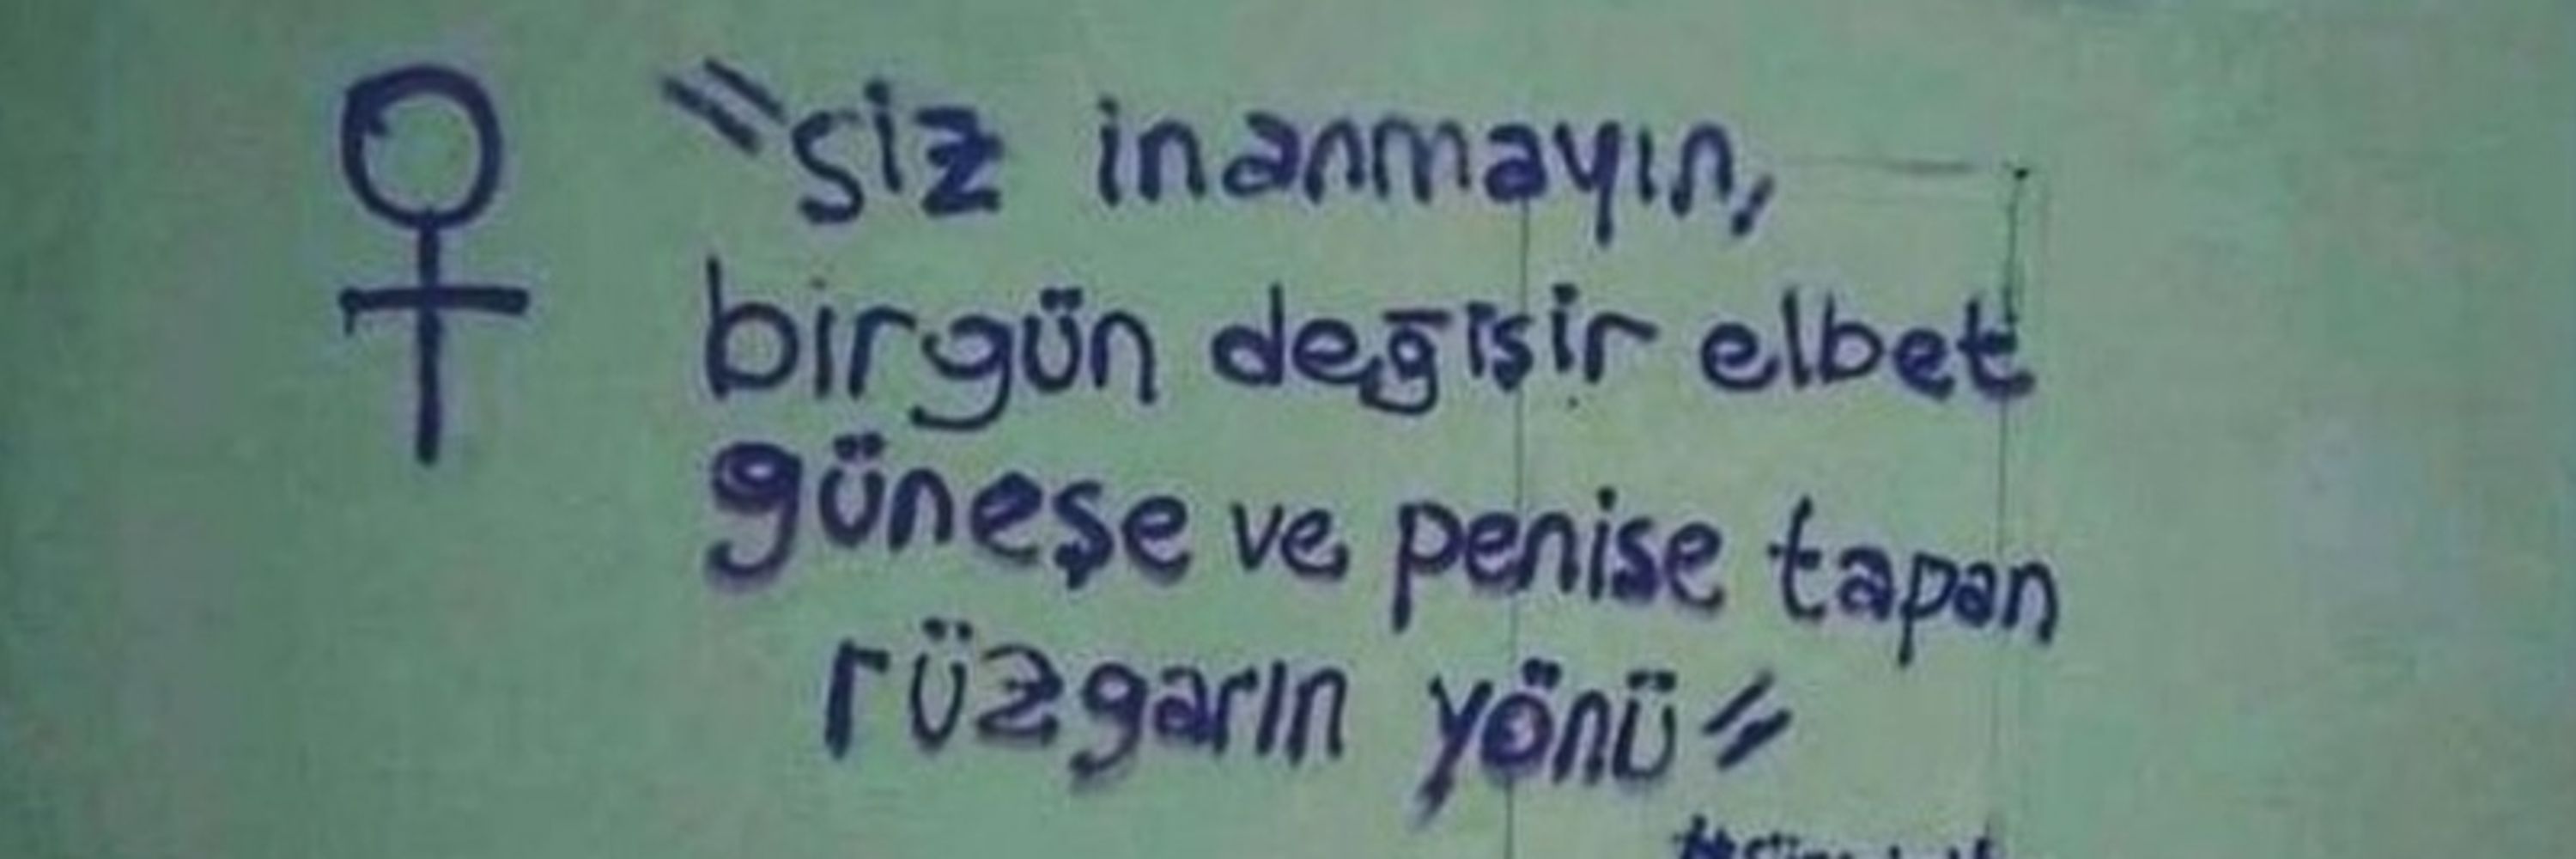 "siz inanmayın,
birgün değişir elbet
güneşe ve penise tapan
rüzgarın yönü"